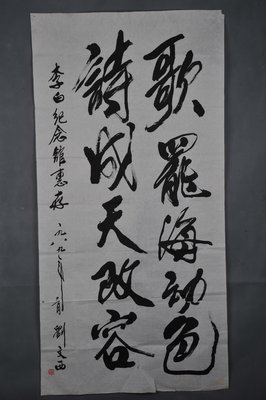 歌罷海動色
詩成天改容
李白纪念館惠存
一九八九年二月 劉文西